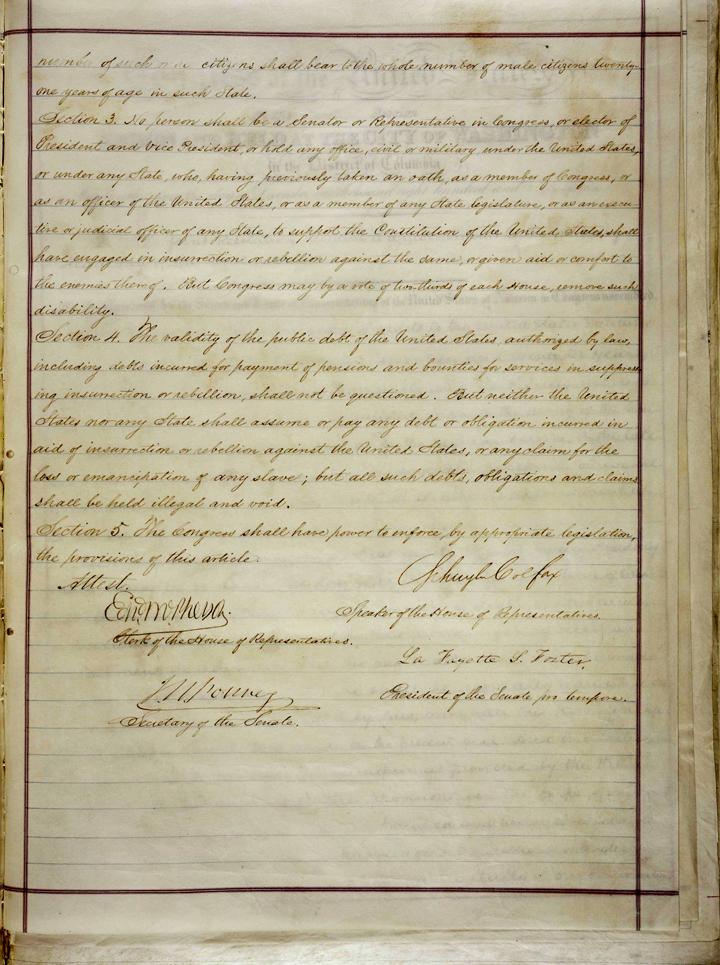 number of such male citizens shall bear to the whole number of male citizens twenty-
one years of age in such State.
Section 3. No person shall be a Senator or Representative in Congress, or elector of
President and Vice President, or hold any office, civil or military, under the United States,
or under any State, who, having previously taken an oath, as a member of Congress, or
as an officer of the United States, or as a member of any State legislature, or as an execu-
tive or judicial officer of any State, to support the Constitution of the United States, shall
have engaged in insurrection or rebellion against the same, or given aid or comfort to
the enemies thereof. But Congress may by a vote of two-thirds of each House, remove such
disability.
Section 4. The validity of the public debt of the United States, authorized by law,
including debts incurred for payment of pensions and bounties for services in suppress-
ing insurrection or rebellion, shall not be questioned. But neither the United
States nor any State shall assume or pay any debt or obligation incurred in
aid of insurrection or rebellion against the United States, or any claim for the
loss or emancipation of any slave; but all such debts, obligations and claims
shall be held illegal and void.
Section 5. The Congress shall have power to enforce, by appropriate legislation,
the provisions of this article.
Attest.
Schuyler Colfax
Edwd McPherson.
Speaker of the House of Representatives.
Clerk of the House of Representatives.
La Fayette S. Foster,
President of the Senate pro tempore.
J.W. Forney
Secretary of the Senate.